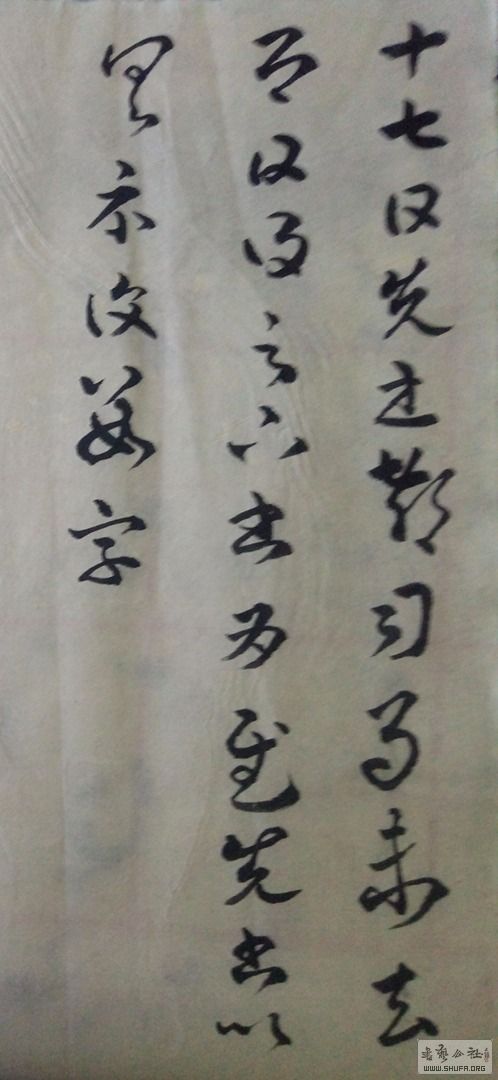 十七日先書郗司馬未去
即日得足下書為慰先書以
具示復數字
書藝公社
WWW.SHUFA.ORG